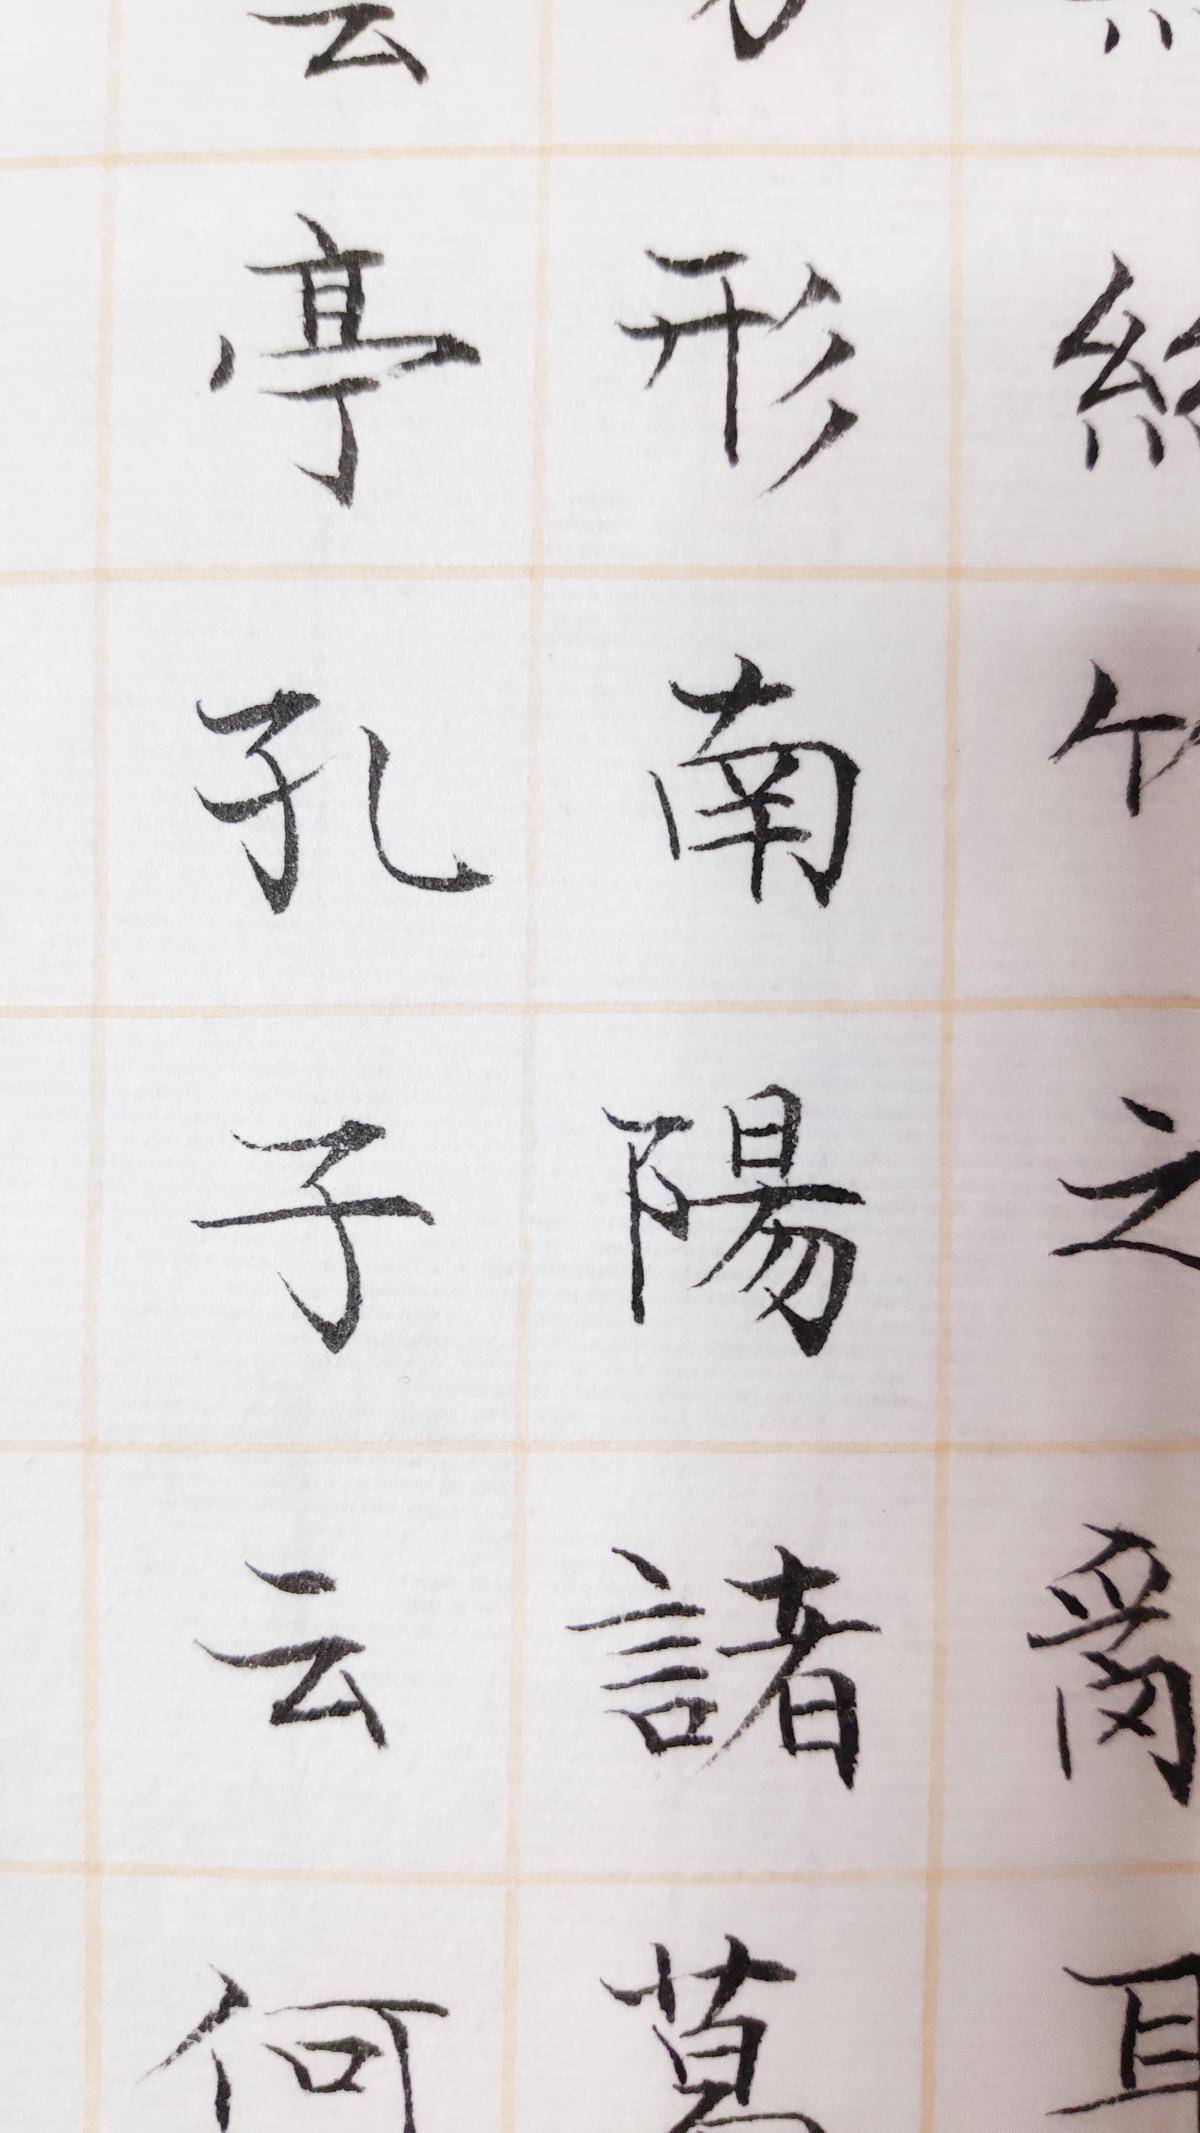 絲竹之亂耳
形南陽諸葛
亭孔子云何